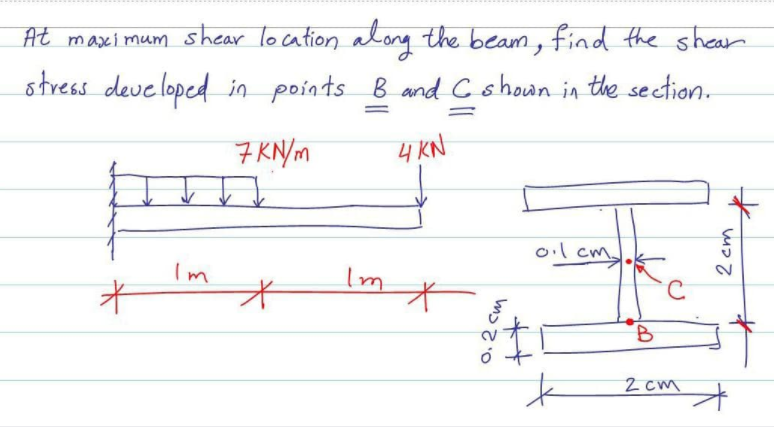 At maximum shear location along the beam, find the shear
stress developed in points B and C shown in the section.
7 KN/m
4 KN
1 m
1 m
0.1 cm
C
2 cm
B
0.2 cm
2 cm